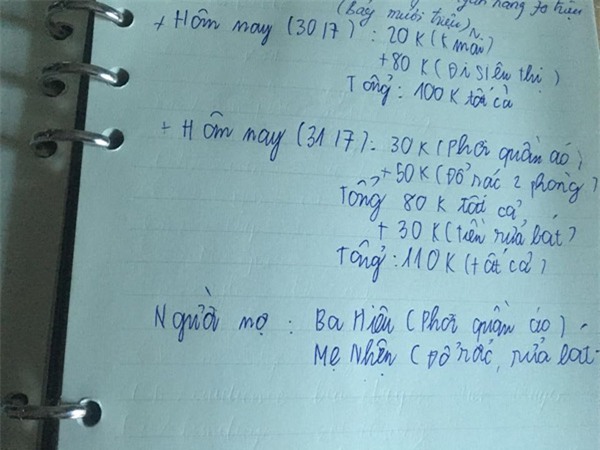 ngân hàng 70 triệu
(Bảy mươi triệu)
+ Hôm nay (30/7): 20 K (K mãi)
+80 K (Đi siêu thị)
Tổng: 100 K tất cả
+ Hôm nay (31/7): 30 K (Phơi quần áo)
+50 K (Đổ rác 2 phòng)
Tổng 80 K tất cả
+ 30 K (tiền rửa bát)
Tổng: 110 K (tất cả)
Người nợ: Ba Hiệu (Phơi quần áo)
Mẹ Nhện (Đổ rác, rửa bát